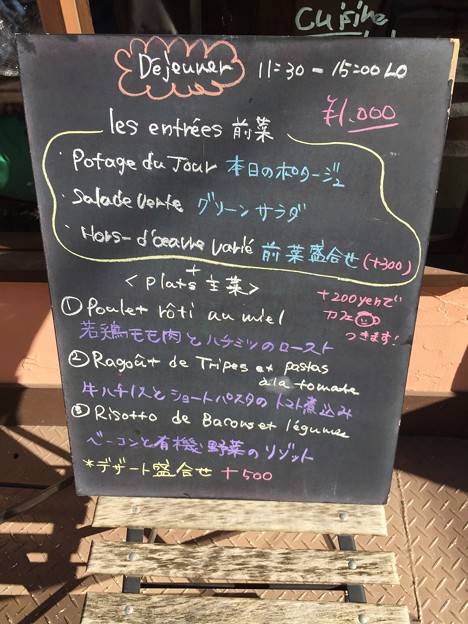 Cuisine
Déjeuner 11:30 - 15:00 LO
¥1.000
les entrées 前菜
・Potage du Jour 本日のポタージュ
・Salade verte グリーンサラダ
・Hors-d'oeuvre varié 前菜盛合せ (+300)
+
< plats 主菜>
+200yenで
カフェ
つきます!
① Poulet rôti au miel
若鶏モモ肉とハチミツのロースト
② Ragoût de Tripes et pastas
à la tomate
牛ハチノスとショートパスタのトマト煮込み
③ Risotto de Bacons et légumes
ベーコンと有機野菜のリゾット
*デザート盛合せ +500